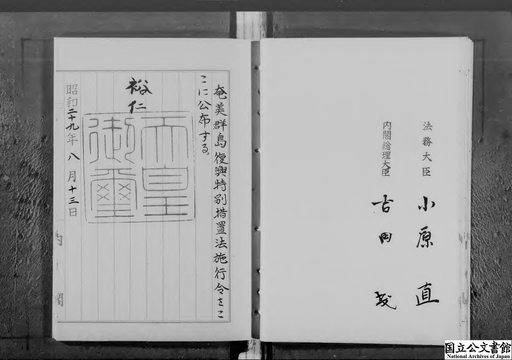 奄美群島復興特別措置法施行令をこ
こに公布する。
裕仁
天皇御璽
昭和二十九年八月十三日
内閣
法務大臣 小原直
内閣総理大臣 吉田茂
国立公文書館
National Archives of Japan